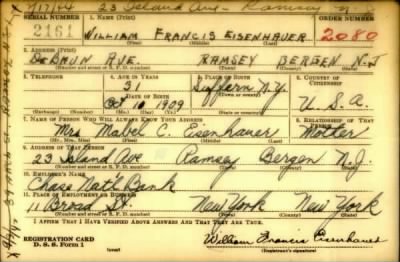 7/17/44 23 Island Ave - Ramsey N.J.
SERIAL NUMBER 1. NAME (Print) ORDER NUMBER
2161 WILLIAM FRANCIS EISENHAUER 2080
(First) (Middle) (Last)
2. ADDRESS (Print)
DeBAUN AVE. RAMSEY BERGEN N.J
(Number and street or R. F. D. number) (Town) (County) (State)
3. TELEPHONE 4. AGE IN YEARS 5. PLACE OF BIRTH 6. COUNTRY OF CITIZENSHIP
31 Suffern N.Y.
DATE OF BIRTH
Oct 10 1909 U.S.A.
7. NAME OF PERSON WHO WILL ALWAYS KNOW YOUR ADDRESS 8. RELATIONSHIP OF THAT PERSON
Mrs Mabel C. Eisenhauer Mother
9. ADDRESS OF THAT PERSON
23 Island Ave Ramsey Bergen N.J.
(Number and street or R. F. D. number) (Town) (County) (State)
10. EMPLOYER'S NAME
Chase Nat'l Bank
11. PLACE OF EMPLOYMENT OR BUSINESS
11 Broad St. New York New York
(Number and street or R. F. D. number) (Town) (County) (State)
I AFFIRM THAT I HAVE VERIFIED ABOVE ANSWERS AND THAT THEY ARE TRUE.
REGISTRATION CARD
D. S. S. Form 1 (over) William Francis Eisenhauer